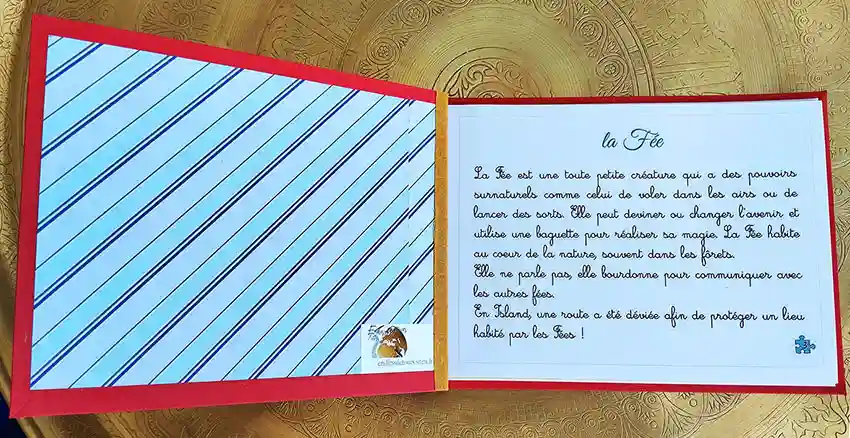 la Fée
La Fée est une toute petite créature qui a des pouvoirs
surnaturels comme celui de voler dans les airs ou de
lancer des sorts. Elle peut deviner ou changer l'avenir et
utilise une baguette pour réaliser sa magie. La Fée habite
au coeur de la nature, souvent dans les fôrets.
Elle ne parle pas, elle bourdonne pour communiquer avec
les autres fées.
En Island, une route a été déviée afin de protéger un lieu
habité par les Fées !